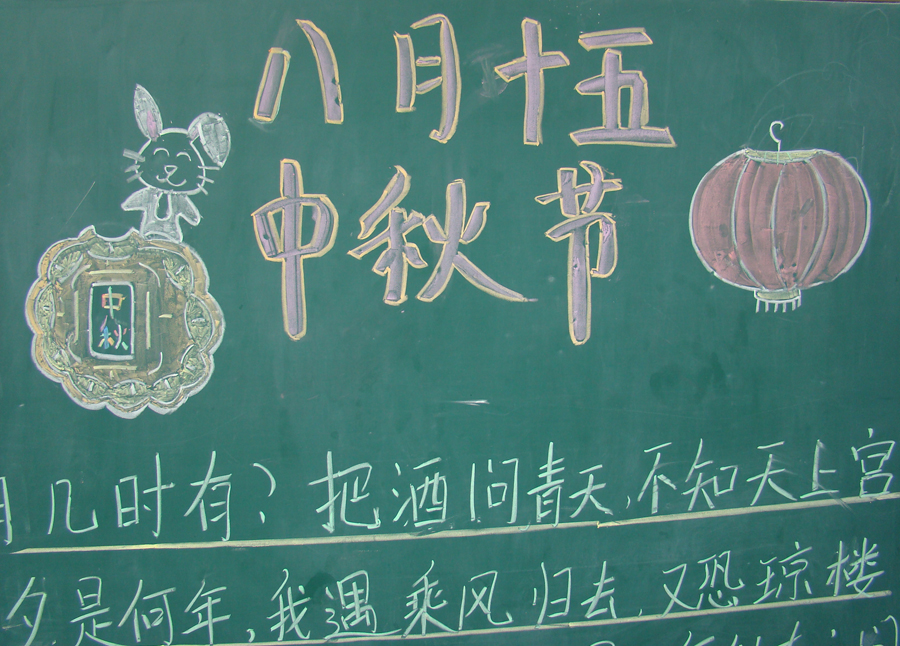 八月十五
中秋节
中秋
月几时有?把酒问青天,不知天上宫
夕是何年,我遇乘风归去,又恐琼楼